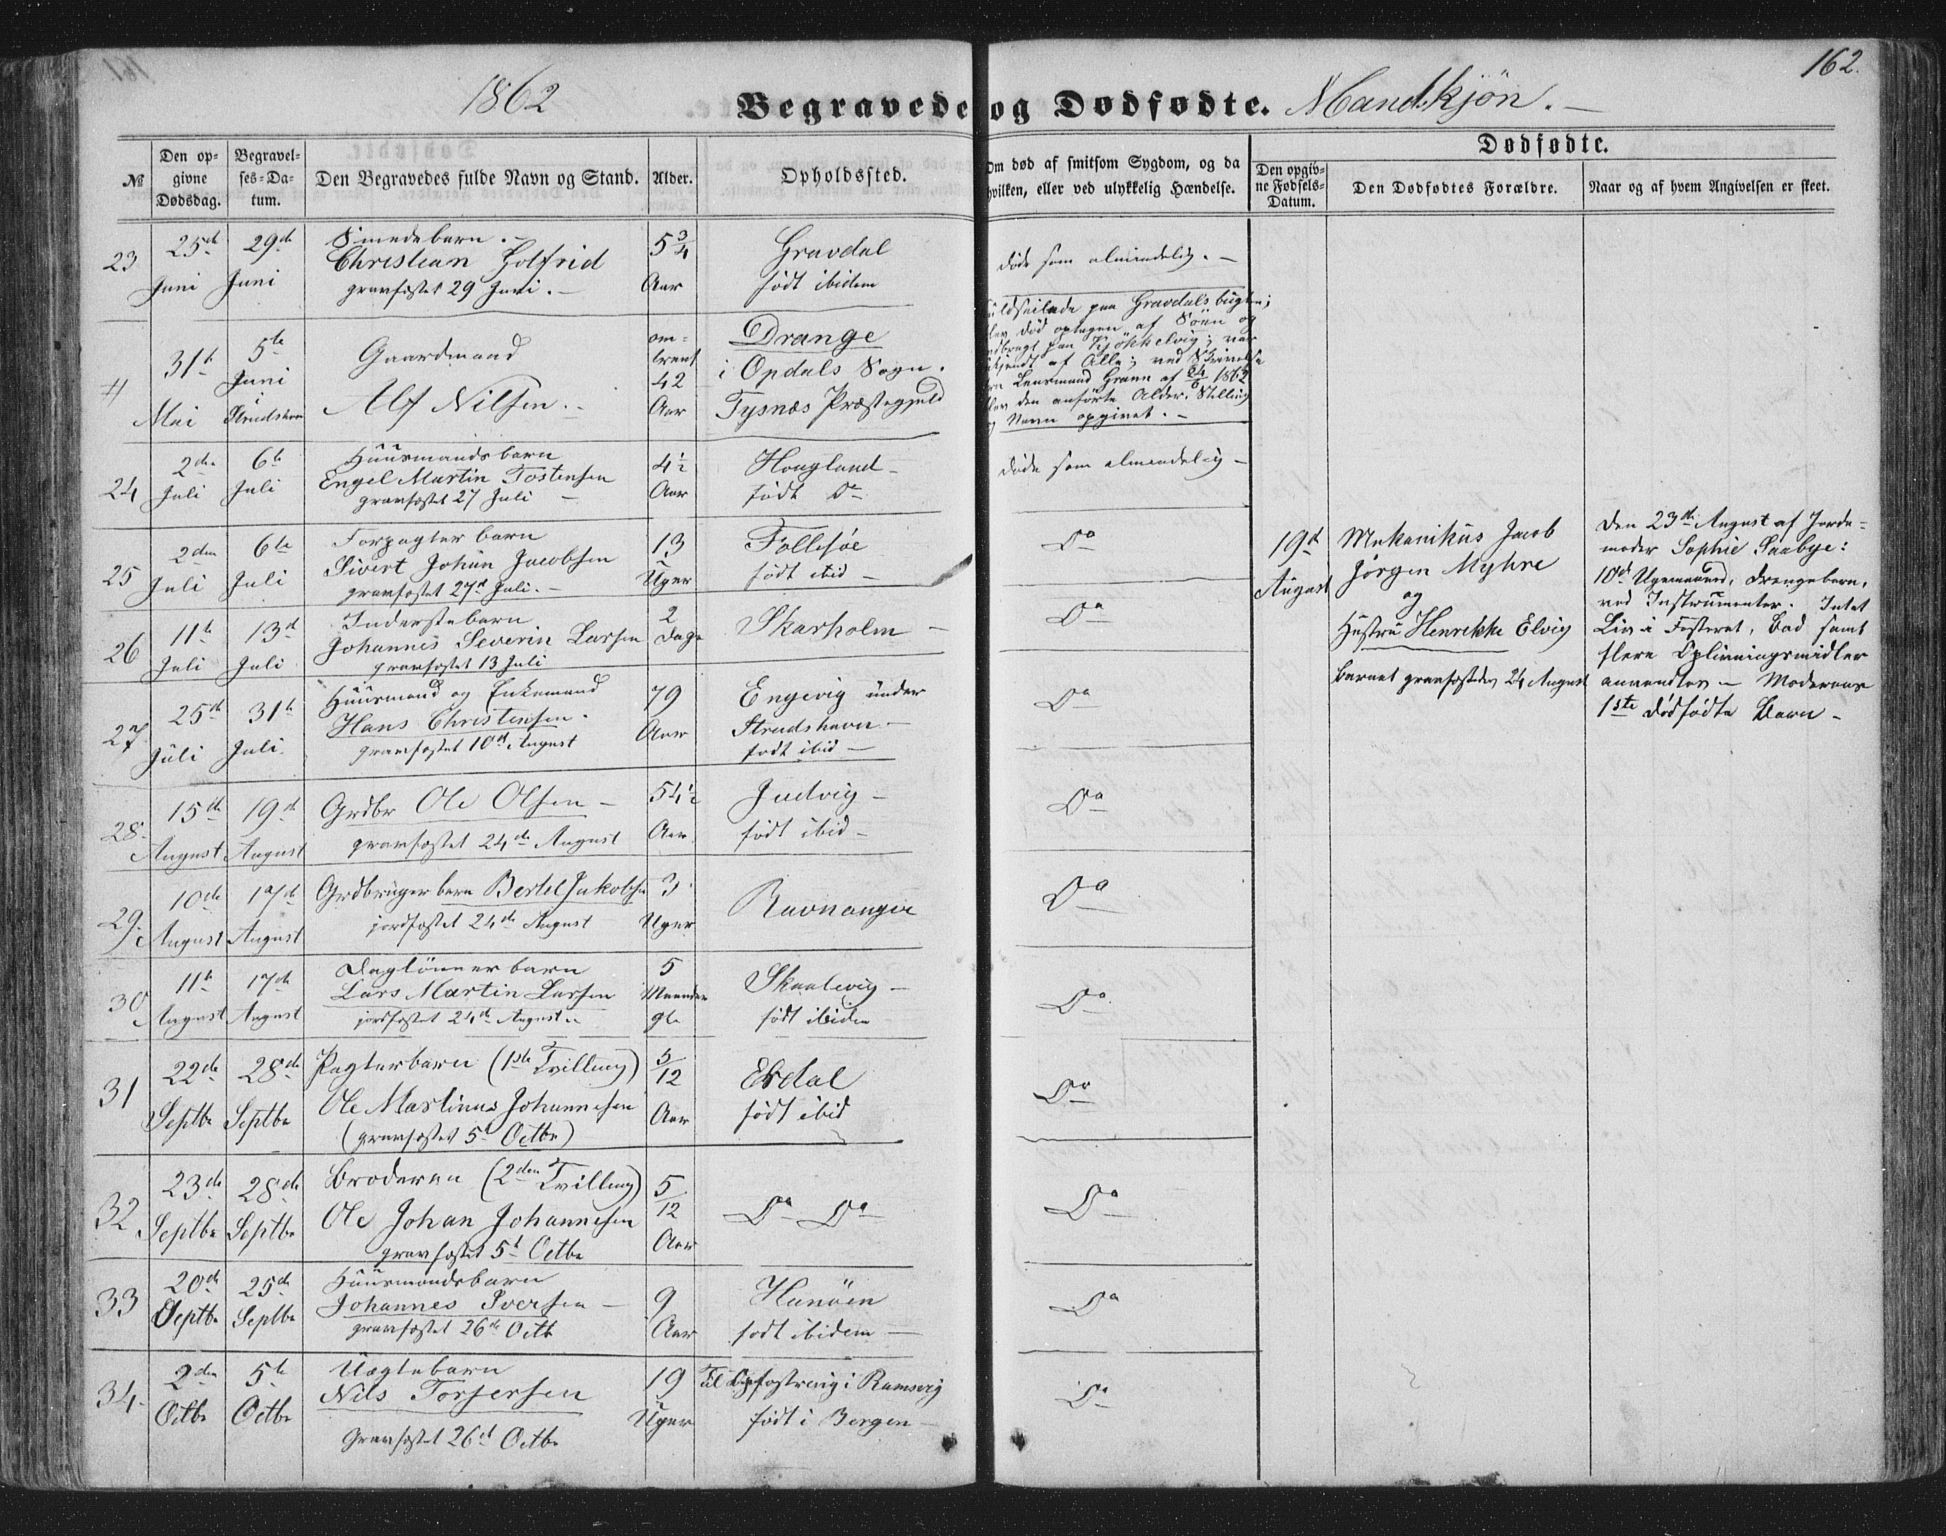 162.
1862
Begravede og Dødfødte. Mandkjön. -
Dødfødte.
№
Den opgivne Dødsdag.
Begravelses-Datum.
Den Begravedes fulde Navn og Stand.
Alder.
Opholdssted.
Om død af smitsom Sygdom, og da hvilken, eller ved ulykkelig Hændelse.
Den opgivne Fødsels-Datum.
Den Dødfødtes Forældre.
Naar og af hvem Angivelsen er skeet.
23
25de Juni
29de Juni
Smedebarn. -
Christian
gravfæstet 29 Juni. -
5 3/4 Aar
Gravdal
født ibidem
døde som almindelig. -
31te Mai
5te Juni
Gaardmand
Alf Nilsen. -
omtrent 42 Aar
Drange
i Opdals Sogn.
Tysnæs Præstegjeld
paa Gravdalsbugten;
død optagen af Söen og
paa Kjökkelvig; var
af Alle; ved Skrivelse
Lensmand Grann af 24/6 1862
den anførte Alder, Stilling
Navn opgivet. -
24
2den Juli
6te Juli
Huusmandsbarn
Engel Martin Tostensen
gravfæstet 27 Juli -
4½ Aar
Hougland -
født Do
døde som almindelig -
25
2den Juli
6te Juli
Forpagterbarn
Sivert Johan Jacobsen
gravfæstet 27de Juli. -
13 Uger
Follesöe
født ibid -
Do
26
11te Juli
13de Juli
Inderstebarn
Johannes Severin Larsen
gravfæstet 13 Juli
2 Dage
Skarholm -
Do
27
25de Juli
31te Juli
Huusmand og Enkemand
Hans Christensen.
gravfæstet 10de August
79 Aar
Engevig under
Strudshavn -
født ibid -
Do
28.
15de August
19de August
Grdbr Ole Olsen -
gravfæstet 24de August
54½ Aar
Judvig -
født ibid -
Do
29.
10de August
17de August
Grdbruger barn Bertel Jakobsen
jordfæstet 24de August
3 Uger
Ravnanger
Do
30
11te August
17de August
Daglönnerbarn
Lars Martin Larsen
jordfæstet 24de August
5 Maaneder gl.
Skaalevig -
født ibidem
Do
31
22de Septbr
28de Septbr
Pagterbarn (1ste Tvilling)
Ole Martinus Johannesen
(gravfæstet 5te Octbr)
5/12 Aar
Ekdal
født ibid
Do
32
23de Septbr
28de Septbr
Broderen (2den Tvilling)
Ole Johan Johannesen
gravfæstet 5te Octbr
5/12 Aar
Do Do
Do
33
20de Septbr
25de Septbr
Huusmandsbarn
Johannes Iversen -
gravfæstet 26de Octb
9 Aar
Hanöen
født ibidem -
Do
34.
2den Octbr
5te Octbr
Uægtebarn
Nils Torgersen
Gravfæstet 26de Octbr
19 Uger
Til Opfostring i Ramsvig
født i Bergen -
Do
19de August
Mekanikus Jacob
Jørgen Myhre
og
Hustru Henrikke Elvig
Barnet gravfæstedes 24 August
Den 23de August af Jorde-
moder Sophie Saabye:
Drengebarn,
ved Instrumenter. Intet
Liv i Fosteret, Bad samt
flere Oplivningsmidler
anvendtes - Moderens
1ste dødfødte Barn -